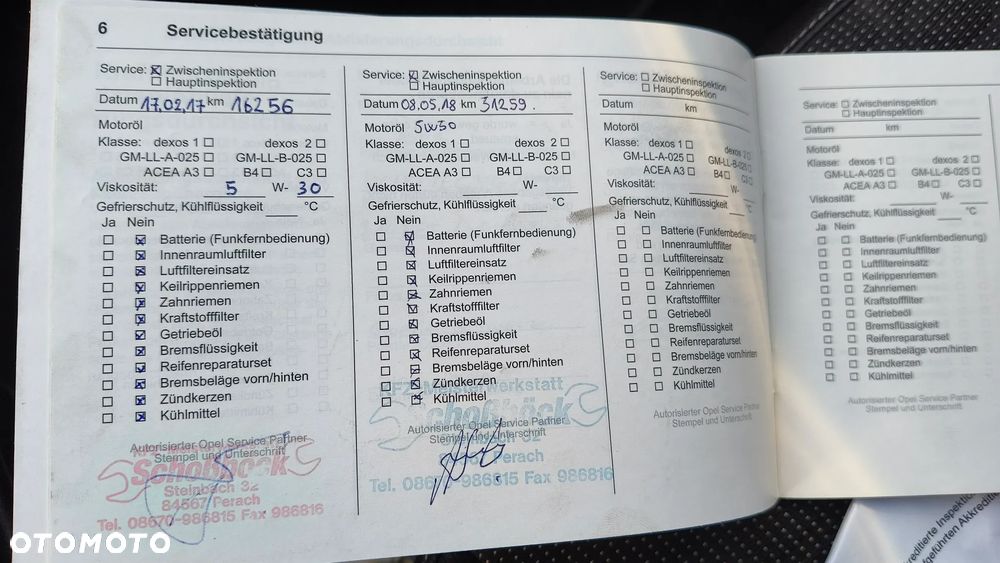 6 Servicebestätigung
Service: Zwischeninspektion
Hauptinspektion
Datum 17.02.17 km 16256
Motoröl
Klasse: dexos 1 dexos 2
GM-LL-A-025 GM-LL-B-025
ACEA A3 B4 C3
Viskosität: 5 W- 30
Gefrierschutz, Kühlflüssigkeit °C
Ja Nein
Batterie (Funkfernbedienung)
Innenraumluftfilter
Luftfiltereinsatz
Keilrippenriemen
Zahnriemen
Kraftstofffilter
Getriebeöl
Bremsflüssigkeit
Reifenreparaturset
Bremsbeläge vorn/hinten
Zündkerzen
Kühlmittel
Autorisierter Opel Service Partner
Stempel und Unterschrift
Schoßböck
Steinbach 32
84567 Perach
Tel. 08670-986815 Fax 986816
Service: Zwischeninspektion
Hauptinspektion
Datum 08.05.18 km 31259.
Motoröl 5W30
Klasse: dexos 1 dexos 2
GM-LL-A-025 GM-LL-B-025
ACEA A3 B4 C3
Viskosität: W-
Gefrierschutz, Kühlflüssigkeit °C
Ja Nein
Batterie (Funkfernbedienung)
Innenraumluftfilter
Luftfiltereinsatz
Keilrippenriemen
Zahnriemen
Kraftstofffilter
Getriebeöl
Bremsflüssigkeit
Reifenreparaturset
Bremsbeläge vorn/hinten
Zündkerzen
Kühlmittel
KFZ-Meisterwerkstatt
Schoßböck
Autorisierter Opel Service Partner
Stempel und Unterschrift
Perach
Tel. 08670-986815 Fax 986816
Service: Zwischeninspektion
Hauptinspektion
Datum km
Motoröl
Klasse: dexos 1 dexos 2
GM-LL-A-025 GM-LL-B-025
ACEA A3 B4 C3
Viskosität: W-
Gefrierschutz, Kühlflüssigkeit °C
Ja Nein
Batterie (Funkfernbedienung)
Innenraumluftfilter
Luftfiltereinsatz
Keilrippenriemen
Zahnriemen
Kraftstofffilter
Getriebeöl
Bremsflüssigkeit
Reifenreparaturset
Bremsbeläge vorn/hinten
Zündkerzen
Kühlmittel
Autorisierter Opel Service Partner
Stempel und Unterschrift
Service: Zwischeninspektion
Hauptinspektion
Datum km
Motoröl
Klasse: dexos 1 dexos 2
GM-LL-A-025 GM-LL-B-025
ACEA A3 B4 C3
Viskosität: W-
Gefrierschutz, Kühlflüssigkeit °C
Ja Nein
Batterie (Funkfernbedienung)
Innenraumluftfilter
Luftfiltereinsatz
Keilrippenriemen
Zahnriemen
Kraftstofffilter
Getriebeöl
Bremsflüssigkeit
Reifenreparaturset
Bremsbeläge vorn/hinten
Zündkerzen
Kühlmittel
Autorisierter Opel Service Partner
Stempel und Unterschrift
OTOMOTO